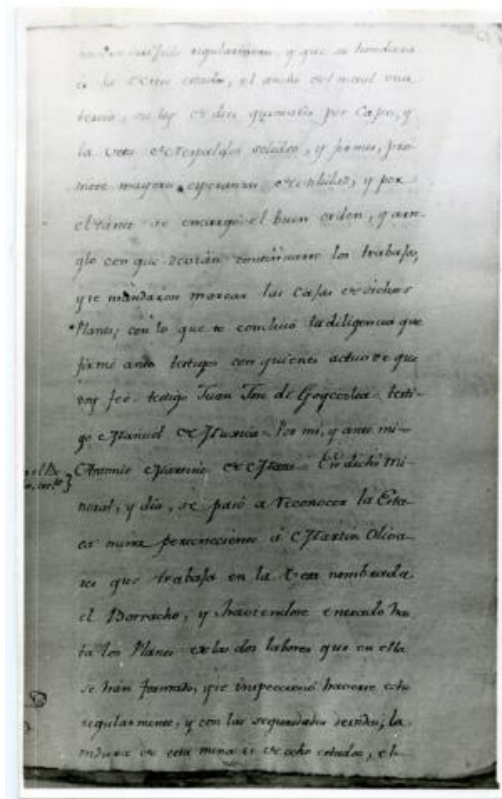 regularmente, y que su hondura
es de estados, el ancho del metal una
tercia, su ley de dies quintales por Caxon, y
la veta de respaldos solidos, y firmes, pro-
mete mayores esperanzas y por
el tanto se encargó el buen orden, y arre-
glo con que deverán continuarse los trabajos,
y se mandaron marcar las Casas de dichos
Planes; con lo que se concluió la diligencia que
firmé ante testigos con quienes actuo de que
doy feé. testigo Juan Jose de Goycoolea. testi-
go Manuel de Por mi, y ante mi
Antonio de En dicho Mi-
neral, y dia, se pasó a reconocer la Esta-
ca mina perteneciente á Martin Oliva-
res que trabaja en la Veta nombrada
el Borracho, y haviendose entrado has-
ta los Planes de las dos labores que en ella
se hán formado, que inspeccionó hacerse
regularmente, y con las seguridades devidas; la
ondura de esta mina es de ocho estados, el